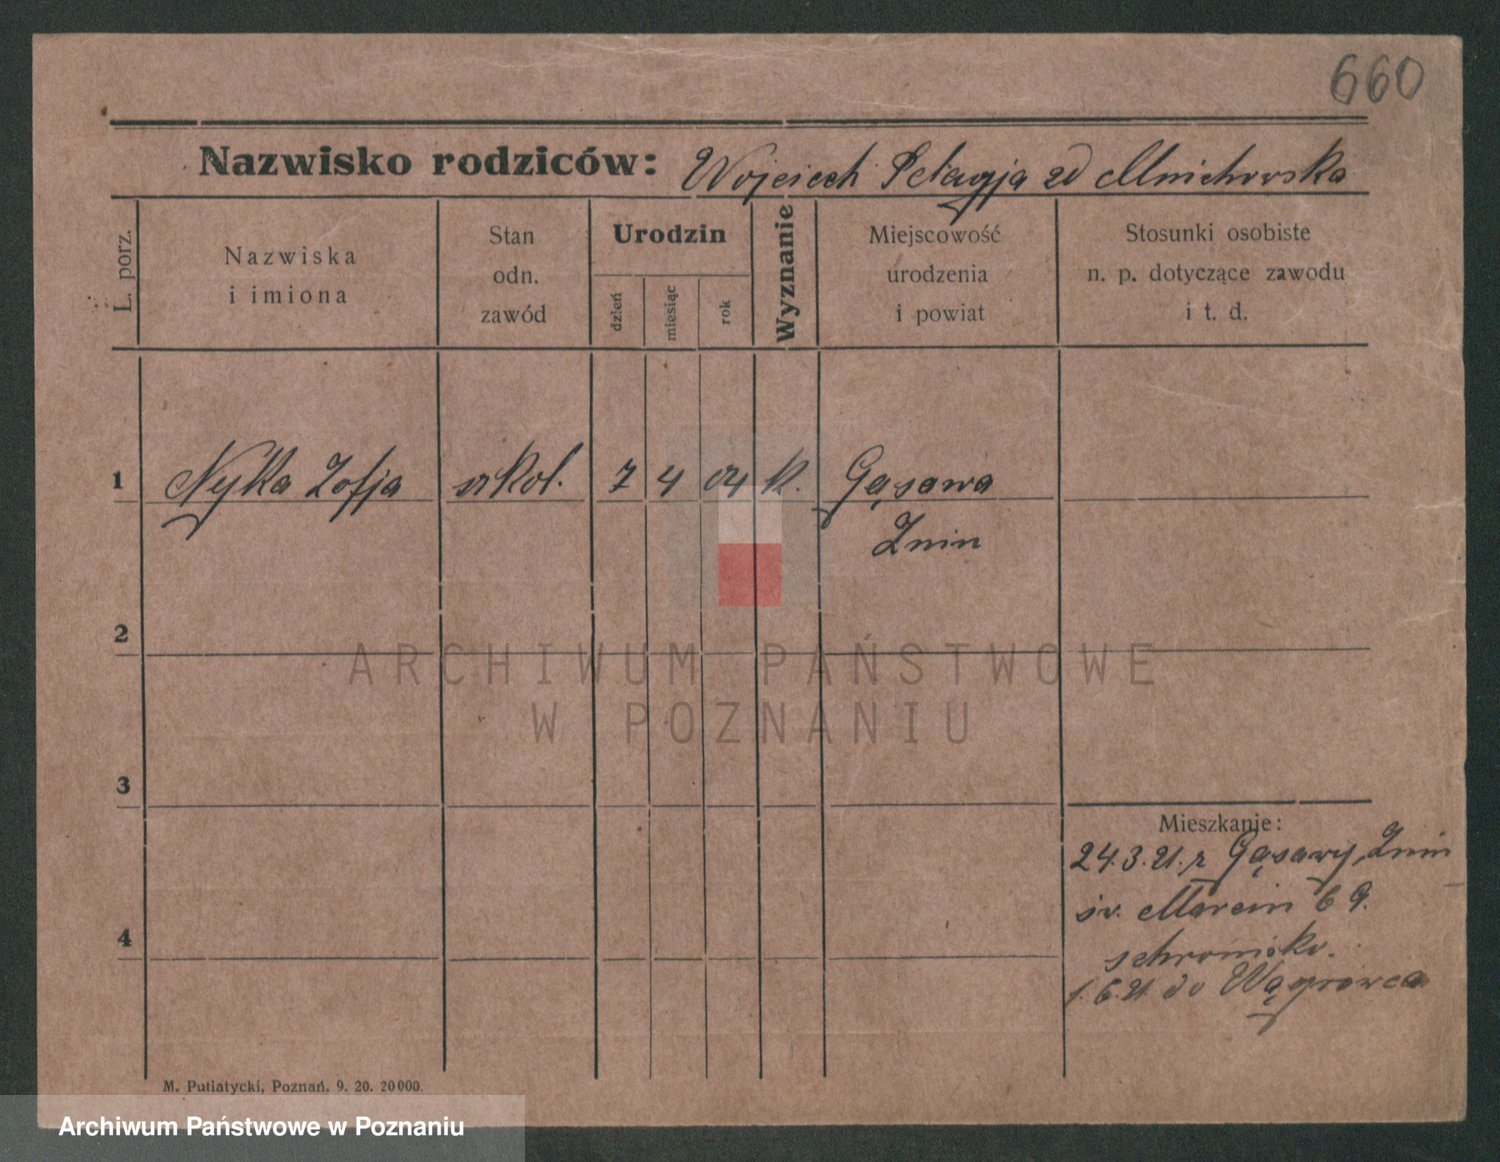 660
Nazwisko rodziców: Wojciech Pelagja zd Mnichowska
L. porz.
Nazwiska
i imiona
Stan
odn.
zawód
Urodzin
dzień
miesiąc
rok
Wyznanie
Miejscowość
urodzenia
i powiat
Stosunki osobiste
n. p. dotyczące zawodu
i t. d.
1 Nyka Zofja 7 4 04 k. Gąsawa
Znin
2
ARCHIWUM PAŃSTWOWE
W POZNANIU
3
Mieszkanie:
24.3.21. z Gąsawy, Znin
św. Marcin 69.
schronisko.
4
1.6.21 do Wągrowca
M. Putiatycki, Poznań. 9. 20. 20000.
Archiwum Państwowe w Poznaniu